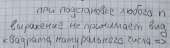 при подстановке любого n
выражение не принимает вид
квадрата натурального числа =>